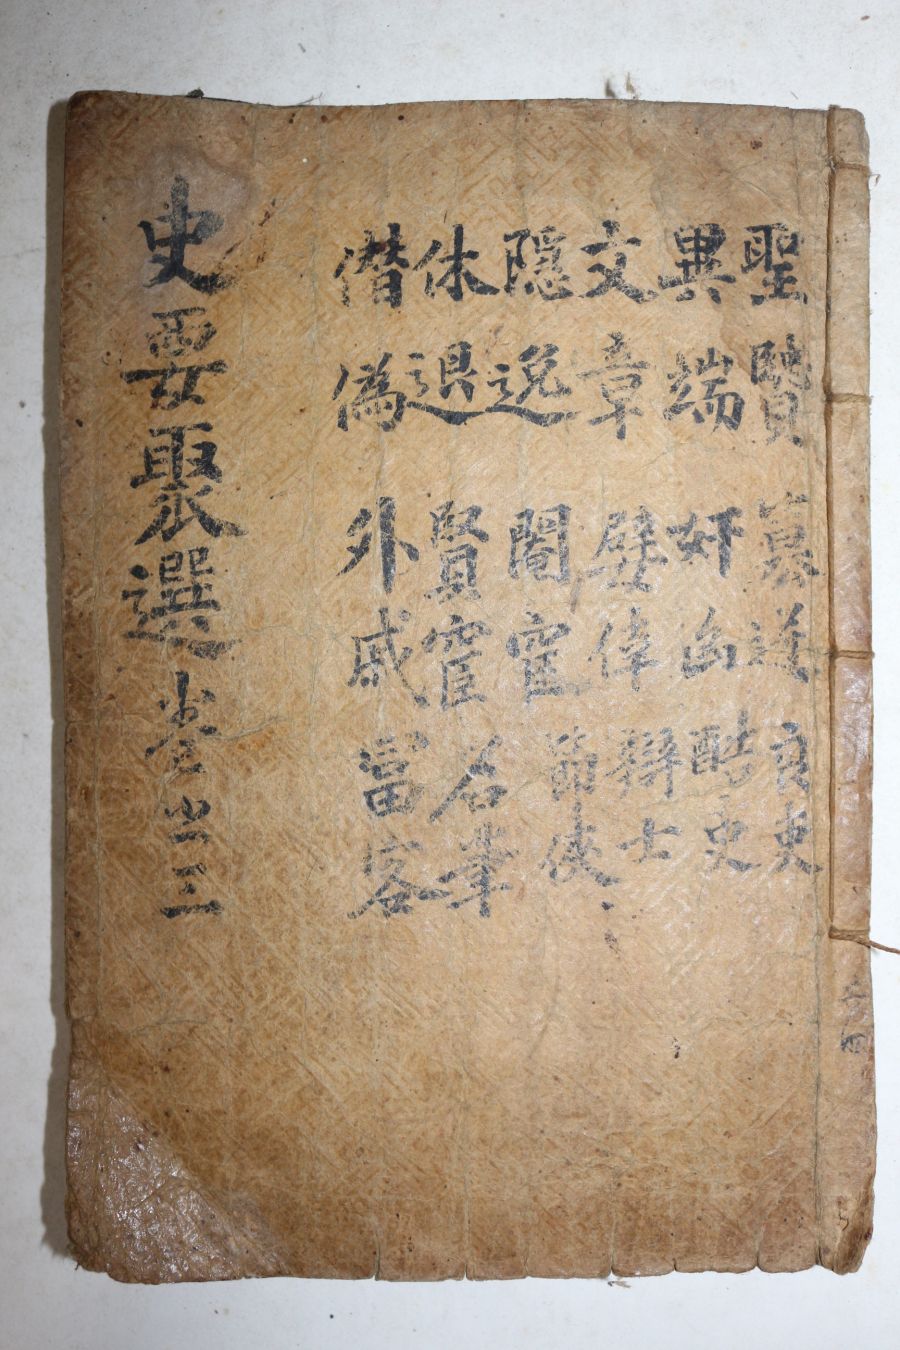 聖賢 篡逆 良吏
異端 奸凶 酷吏
文章 嬖倖 辯士
隠逸 閹宦 節俠
休退 賢宦 名筆
僭僞 外戚 富客
史要聚選 卷之三